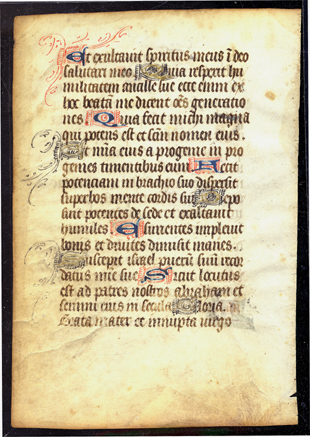 Et exultavit spiritus meus ī deo
salutari meo. Quia respexit hu
militatem ancille sue ecce enim ex
hoc beatā me dicent oēs generatio
nes Quia fecit michi magna
qui potens est et sanū nomen eius.
Et mīa eius a progenie in pro
genies timentibus eum Fecit
potentiam in brachio suo dispersit
superbos mente cordis sui Depo
suit potentes de sede et exaltavit
humiles Esurientes implevit
bonis et divites dimisit inanes.
Suscepit israel puerū suū recor
datus mīe sue Sicut locutus
est ad patres nostros abraham et
semini eius in secula Gloria.
Beata mater et innupta virgo